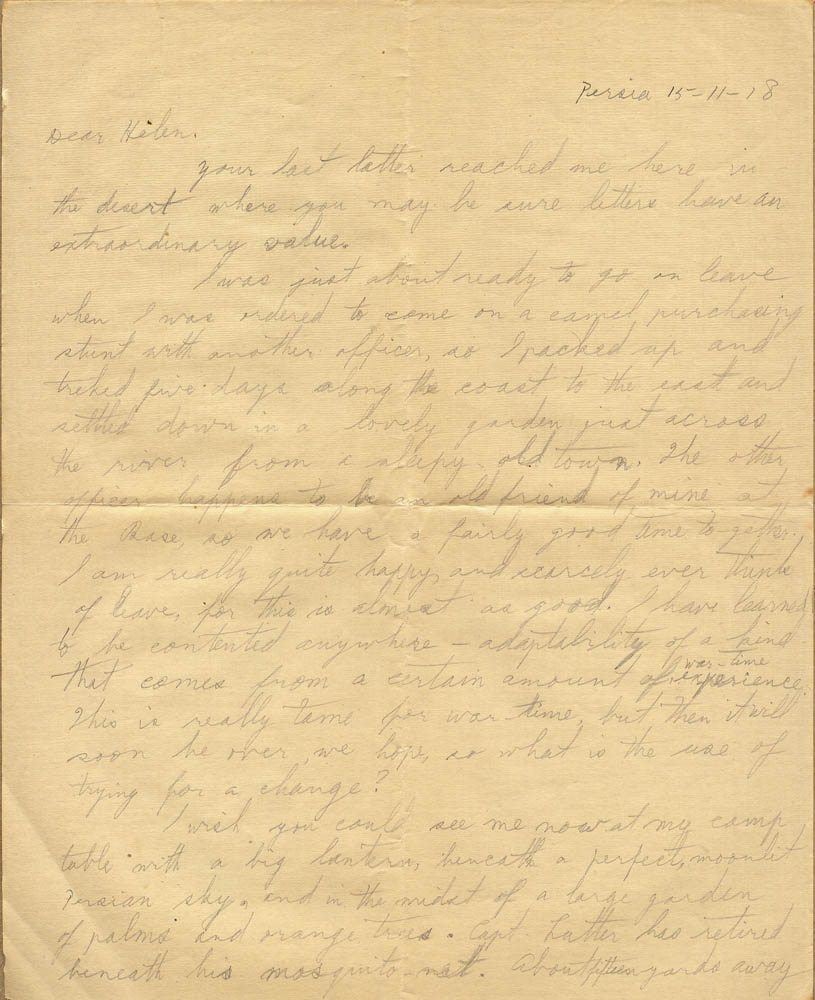 Persia 15-11-18
Dear Helen.
Your last letter reached me here in
the desert where you may be sure letters have an
extraordinary value.
I was just about ready to go on leave
when I was ordered to come on a camel purchasing
stunt with another officer, so I packed up and
treked five days along the coast to the east and
settled down in a lovely garden just across
the river from a sleepy old town. The other
officer happens to be an old friend of mine at
the Base, so we have a fairly good time to-gether.
I am really quite happy, and scarcely ever think
of leave, for this is almost as good. I have learned
to be contented anywhere – adaptability of a kind
war-time
that comes from a certain amount of experience.
This is really tame for war time, but then it will
soon be over, we hope, so what is the use of
trying for a change?
I wish you could see me now at my camp
table with a big lantern, beneath a perfect, moonlit
Persian sky, and in the midst of a large garden
of palms and orange trees. Capt. has retired
beneath his mosquito-net. About fifteen yards away